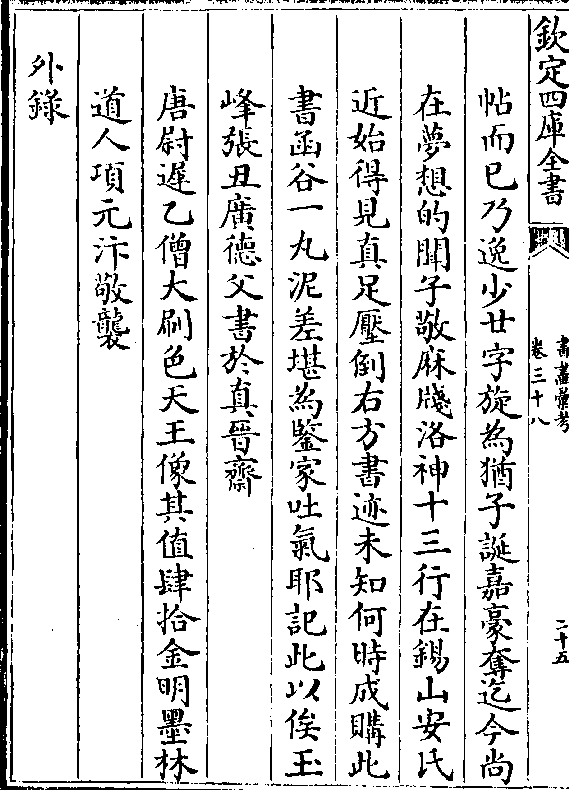 欽定四庫全書
書畫彙考
卷三十八
二十五
帖而已乃逸少廿字旋為猶子誕嘉豪奪迄今尚
在夢想的聞子敬麻牋洛神十三行在錫山安氏
近始得見真足壓倒右方書迹未知何時成購此
書函谷一丸泥差堪為鑒家吐氣耶記此以俟玉
峰張丑廣德父書於真晉齋
唐尉遲乙僧大刷色天王像其值肆拾金明墨林
道人項元汴敬襲
外錄